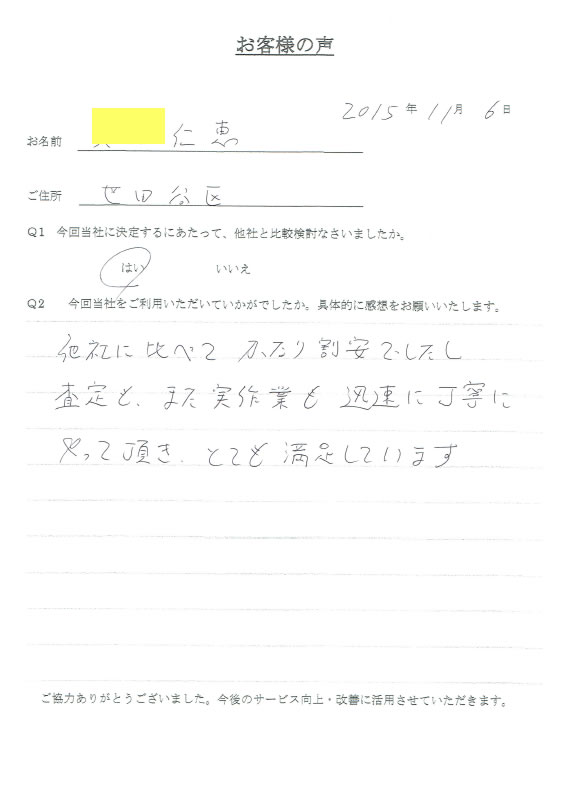 お客様の声
2015年11月6日
お名前 仁恵
ご住所 世田谷区
Q1 今回当社に決定するにあたって、他社と比較検討なさいましたか。
はい いいえ
Q2 今回当社をご利用いただいていかがでしたか。具体的に感想をお願いいたします。
他社に比べて かなり割安でしたし
査定も、また実作業も迅速に丁寧に
やって頂き、とても満足しています
ご協力ありがとうございました。今後のサービス向上・改善に活用させていただきます。